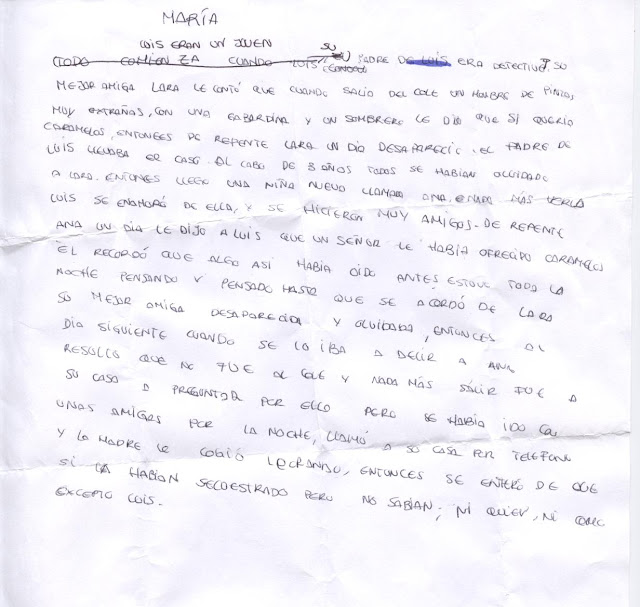 MARÍA
LUIS ERAN UN JOVEN SU
TODO COMIENZA CUANDO LUIS PADRE DE LUIS ERA DETECTIVE, SU
MEJOR AMIGA LARA LE CONTÓ QUE CUANDO SALIO DEL COLE UN HOMBRE DE PINTAS,
MUY EXTRAÑAS, CON UNA GABARDINA Y UN SOMBRERO LE DIJO QUE SI QUERÍA
CARAMELOS, ENTONCES DE REPENTE LARA UN DÍA DESAPARECIÓ. EL PADRE DE
LUIS LLEVABA EL CASO. AL CABO DE 3 AÑOS TODOS SE HABÍAN OLVIDADO
A LARA. ENTONES LLEGÓ UNA NIÑA NUEVA LLAMADA ANA. NADA MÁS VERLA
LUIS SE ENAMORÓ DE ELLA, Y SE HICIERON MUY AMIGOS. DE REPENTE
ANA UN DÍA LE DIJO A LUIS QUE UN SEÑOR LE HABÍA OFRECIDO CARAMELOS
EL RECORDÓ QUE ALGO ASÍ HABÍA OIDO ANTES ESTUVO TODA LA
NOCHE PENSANDO Y PENSADO HASTA QUE SE ACORDÓ DE LARA
SU MEJOR AMIGA DESAPARECIDA Y OLVIDADA, ENTONCES AL
DÍA SIGUIENTE CUANDO SE LO IBA A DECIR A ANA
RESULTO QUE NO FUE AL COLE Y NADA MÁS SALIR FUE A
SU CASA A PREGUNTAR POR ELLA PERO SE HABÍA IDO CON
UNAS AMIGAS POR LA NOCHE, LLAMÓ A SU CASA POR TELEFONO
Y LA MADRE LE COGIÓ LLORANDO, ENTONCES SE ENTERÓ DE QUE
SI LA HABÍAN SECOESTRADO PERO NO SABÍAN; NI QUIEN, NI COMO
EXCEPTO LUIS.